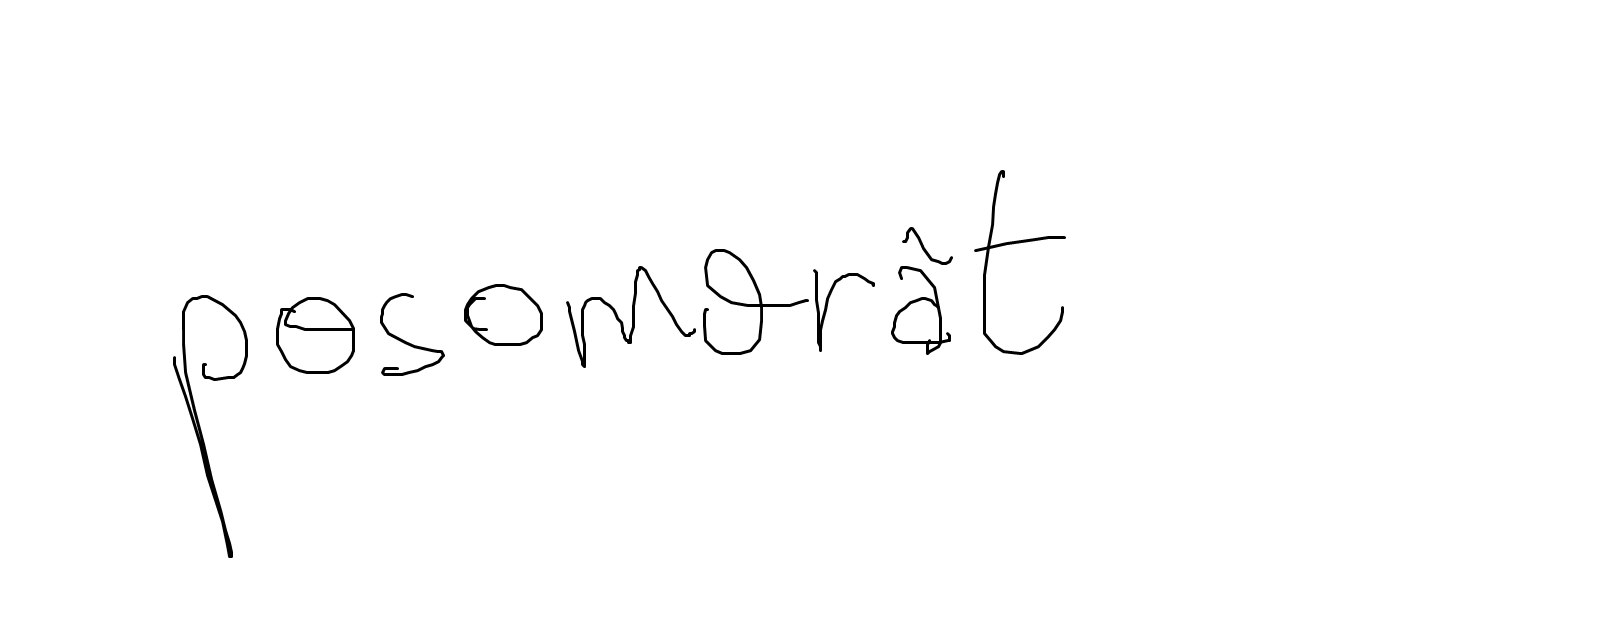 posomorât